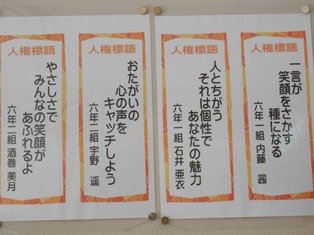 人権標語
一言が
笑顔をさかす
種になる
六年一組 内藤 茜
人権標語
人とちがう
それは個性で
あなたの魅力
六年一組 石井 亜衣
人権標語
おたがいの
心の声を
キャッチしよう
六年二組 宇野 遥
人権標語
やさしさで
みんなの笑顔が
あふれるよ
六年二組 酒巻 美月